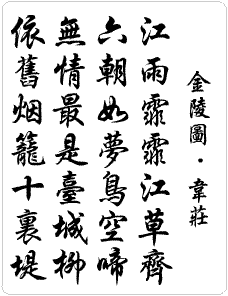 金陵圖·韋莊
江雨霏霏江草齊
六朝如夢鳥空啼
無情最是臺城柳
依舊烟籠十裏堤